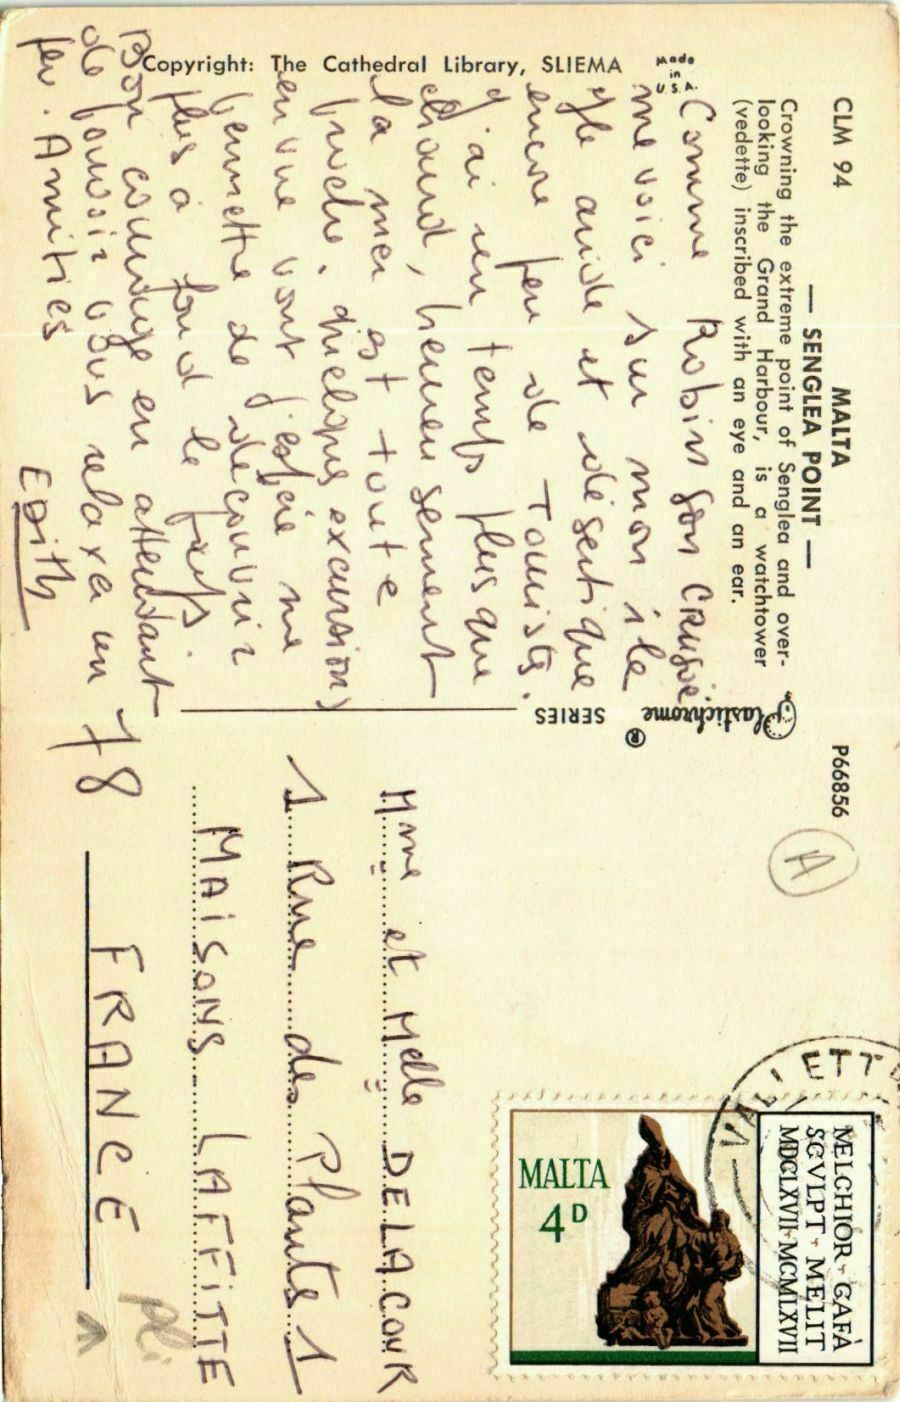 CLM 94
MALTA
— SENGLEA POINT —
Crowning the extreme point of Senglea and over-
looking the Grand Harbour, is a watchtower
(vedette) inscribed with an eye and an ear.
P66856
Plastichrome ® SERIES
Made
in
U.S.A.
Copyright: The Cathedral Library, SLIEMA
Comme Robinson CRUSOÉ
me voici sur mon île
aride et désertique
encore peu de Tourists.
J'ai un temps plus que
chaud, heureusement
la mer est toute
proche. quelques excursions
en vue vont j'espère me
permettre de découvrir
plus à fond le pays.
Bon courage en attendant
de pouvoir vous relaxer un
peu. Amitiés
EDITH
A
Mme et Melle DELACOUR
1 Rue des Plantes 1
MAISONS LAFFITTE
78
FRANCE
VALLETTA
MALTA
4D
MELCHIOR · GAFÀ
SCVLPT · MELIT
MDCLXVII · MCMLXVII